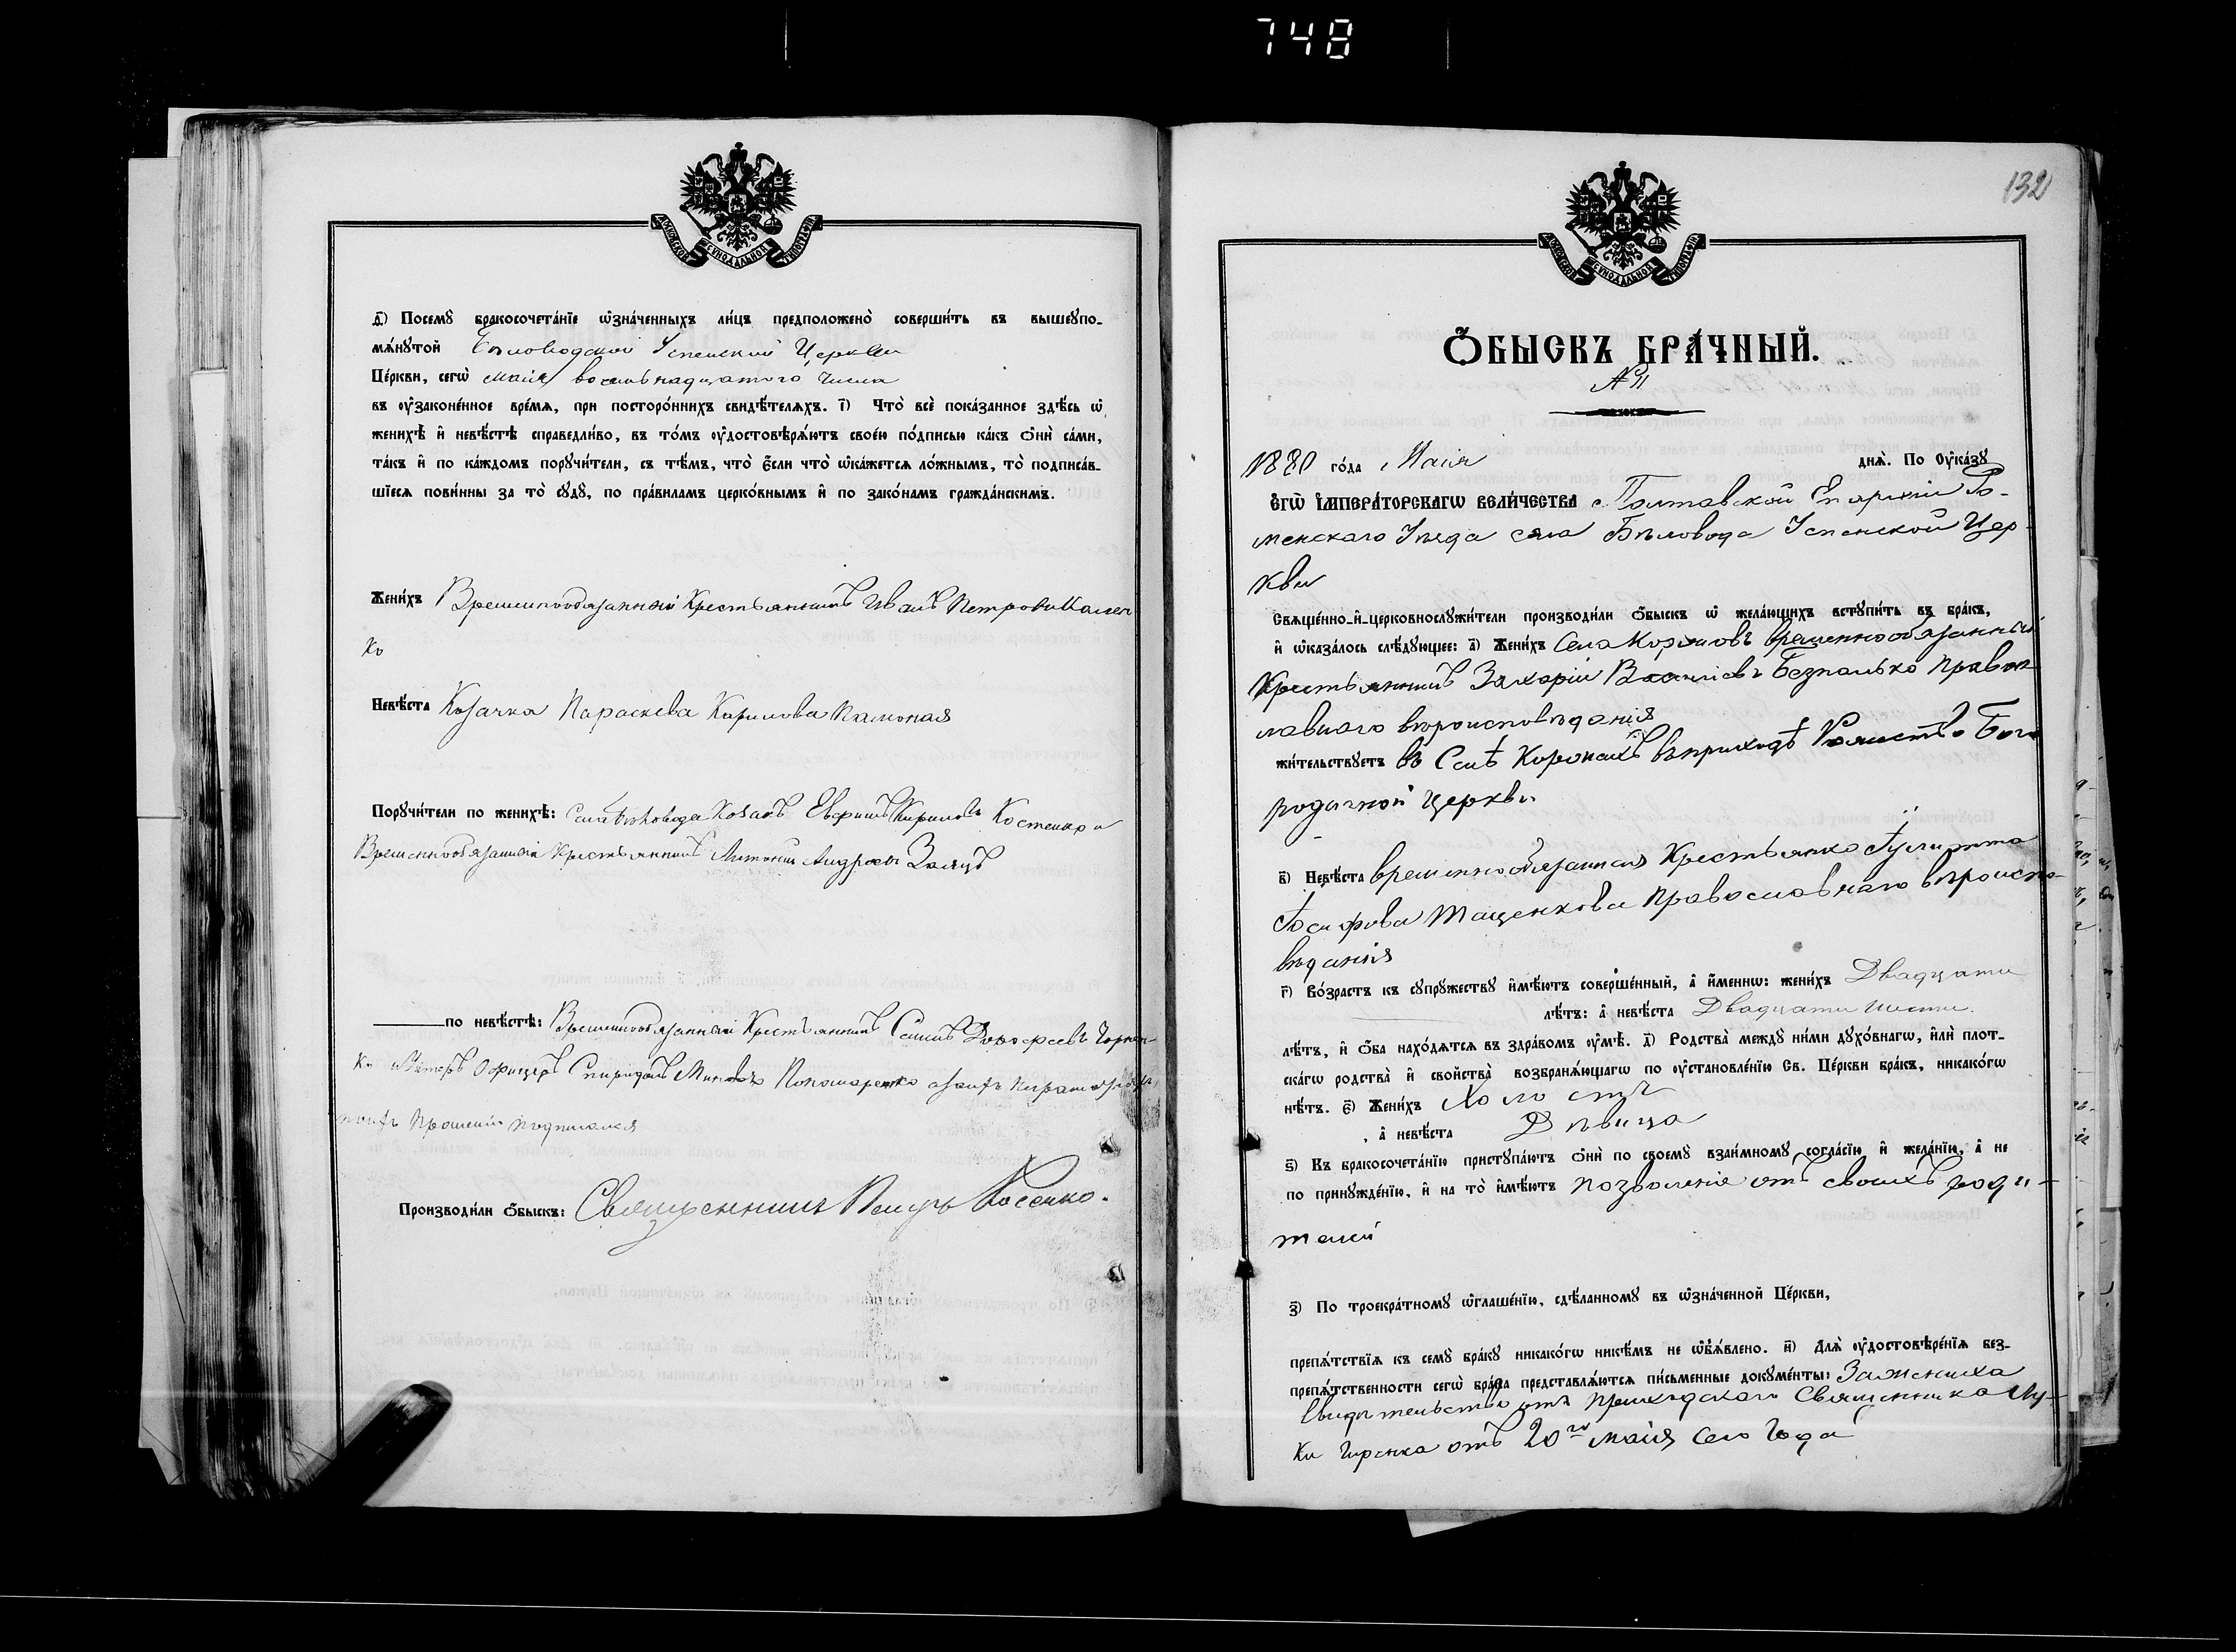 748
МОСКОВСКОЙ СѴНОДАЛЬНОЙ ТИПОГРАФІИ
ѳ҃) Посемꙋ бракосочета́нїе ѡ҆зна́ченныхъ ли́цъ предположено̀ соверши́ть въ вышеꙋпо-
мѧ́нꙋтой Бѣловодской Успенской Церкви
Це́ркви, сегѡ̀ мая восьмнадцатаго числа
въ ᲂу҆законе́нное вре́мѧ, при посторо́ннихъ свидѣ́телѧхъ. і҃) Что̀ всѐ пока́занное здѣ́сь ѡ҆
женихѣ̀ и҆ невѣ́стѣ справедли́во, въ то́мъ ᲂу҆достовѣрѧ́ютъ свое́ю по́дписью ка́къ ѻ҆нѝ са́ми,
та́къ и҆ по ка́ждомъ порꙋчи́тели, съ тѣ́мъ, что̀ є҆́сли что̀ ѡ҆ка́жетсѧ ло́жнымъ, то̀ подписа́в-
шїесѧ пови́нны за то̀ сꙋдꙋ̀, по пра́виламъ церко́внымъ и҆ по зако́намъ гражда́нскимъ.
Жени́хъ Временнообязанный Крестьянинъ Иванъ Петровъ
ко
Невѣ́ста Козачка Параскева Карпова
Порꙋчи́тели по женихѣ̀: Села Бѣловода Козакъ Евфимъ Кириловъ Костенко и
Временнообязанный Крестьянинъ Антоній Андреевъ Заяцъ
по невѣ́стѣ: Временнообязанный Крестьянинъ Дорофеевъ
ко Унтеръ Офицеръ Спиридонъ Пономаренко
прошенію подписался
Производи́ли ѻ҆́быскъ: Священникъ Косенко.
132
МОСКОВСКОЙ СѴНОДАЛЬНОЙ ТИПОГРАФІИ
Ѻ҆́БЫСКЪ БРА́ЧНЫЙ.
№ 11
1880 го́да Маія днѧ̀. По Оу҆ка́зꙋ
Є҆гѡ̀ І҆мпера́торскагѡ Вели́чества Полтавской Епархіи Ро-
менскаго Уѣзда села Бѣловода Успенской Цер-
кви
Свѧще́нно-и҆-церковнослꙋжи́тели производи́ли ѻ҆́быскъ ѡ҆ жела́ющихъ встꙋпи́ть въ бра́къ,
и҆ ѡ҆каза́лось слѣ́дꙋющее: а҃) Жени́хъ Села временнообязанный
Крестьянинъ Захарій Василіевъ Безпалько Право-
славнаго вѣроисповѣданія
жи́тельствꙋетъ въ Селѣ въ приходѣ Рождество Бого
родичной Церкви
в҃) Невѣ́ста временнообязанная Крестьянка Іулитта
Іосифова Тащенкова Православнаго вѣроиспо-
вѣданія
г҃) Во́зрастъ къ сꙋпрꙋ́жествꙋ и҆мѣ́ютъ соверше́нный, а҆ и҆́меннѡ: жени́хъ Двадцати
лѣ́тъ: а҆ невѣ́ста Двадцати шести.
лѣ́тъ, и҆ ѻ҆́ба нахо́дѧтсѧ въ здра́вомъ ᲂу҆мѣ̀. д҃) Родства̀ междꙋ̀ ни́ми дꙋхо́внагѡ, и҆лѝ плот-
ска́гѡ родства̀ и҆ свойства̀ возбранѧ́ющагѡ по ᲂу҆становле́нїю Св. Це́ркви бра́къ, никако́гѡ
нѣ́тъ. є҃) Жени́хъ Холостъ
, а҆ невѣ́ста Дѣвица
ѕ҃) Къ бракосочета́нїю пристꙋпа́ютъ ѻ҆нѝ по своемꙋ̀ взаи́мномꙋ согла́сїю и҆ жела́нїю, а҆ не
по принꙋжде́нїю, и҆ на то̀ и҆мѣ́ютъ позволеніе отъ своихъ роди-
телей
з҃) По троекра́тномꙋ ѡ҆глаше́нїю, сдѣ́ланномꙋ въ ѡ҆зна́ченной Це́ркви,
препѧ́тствїѧ къ семꙋ̀ бра́кꙋ никако́гѡ никѣ́мъ не ѡ҆б̾ѧ́влено. и҃) Длѧ̀ ᲂу҆достовѣре́нїѧ без-
препѧ́тственности сегѡ̀ бра́ка представлѧ́ютсѧ пи́сьменные докꙋме́нты: За жениха
Свидѣтельство отъ приходскаго Священника Лу-
ки отъ 20го маія сего Года